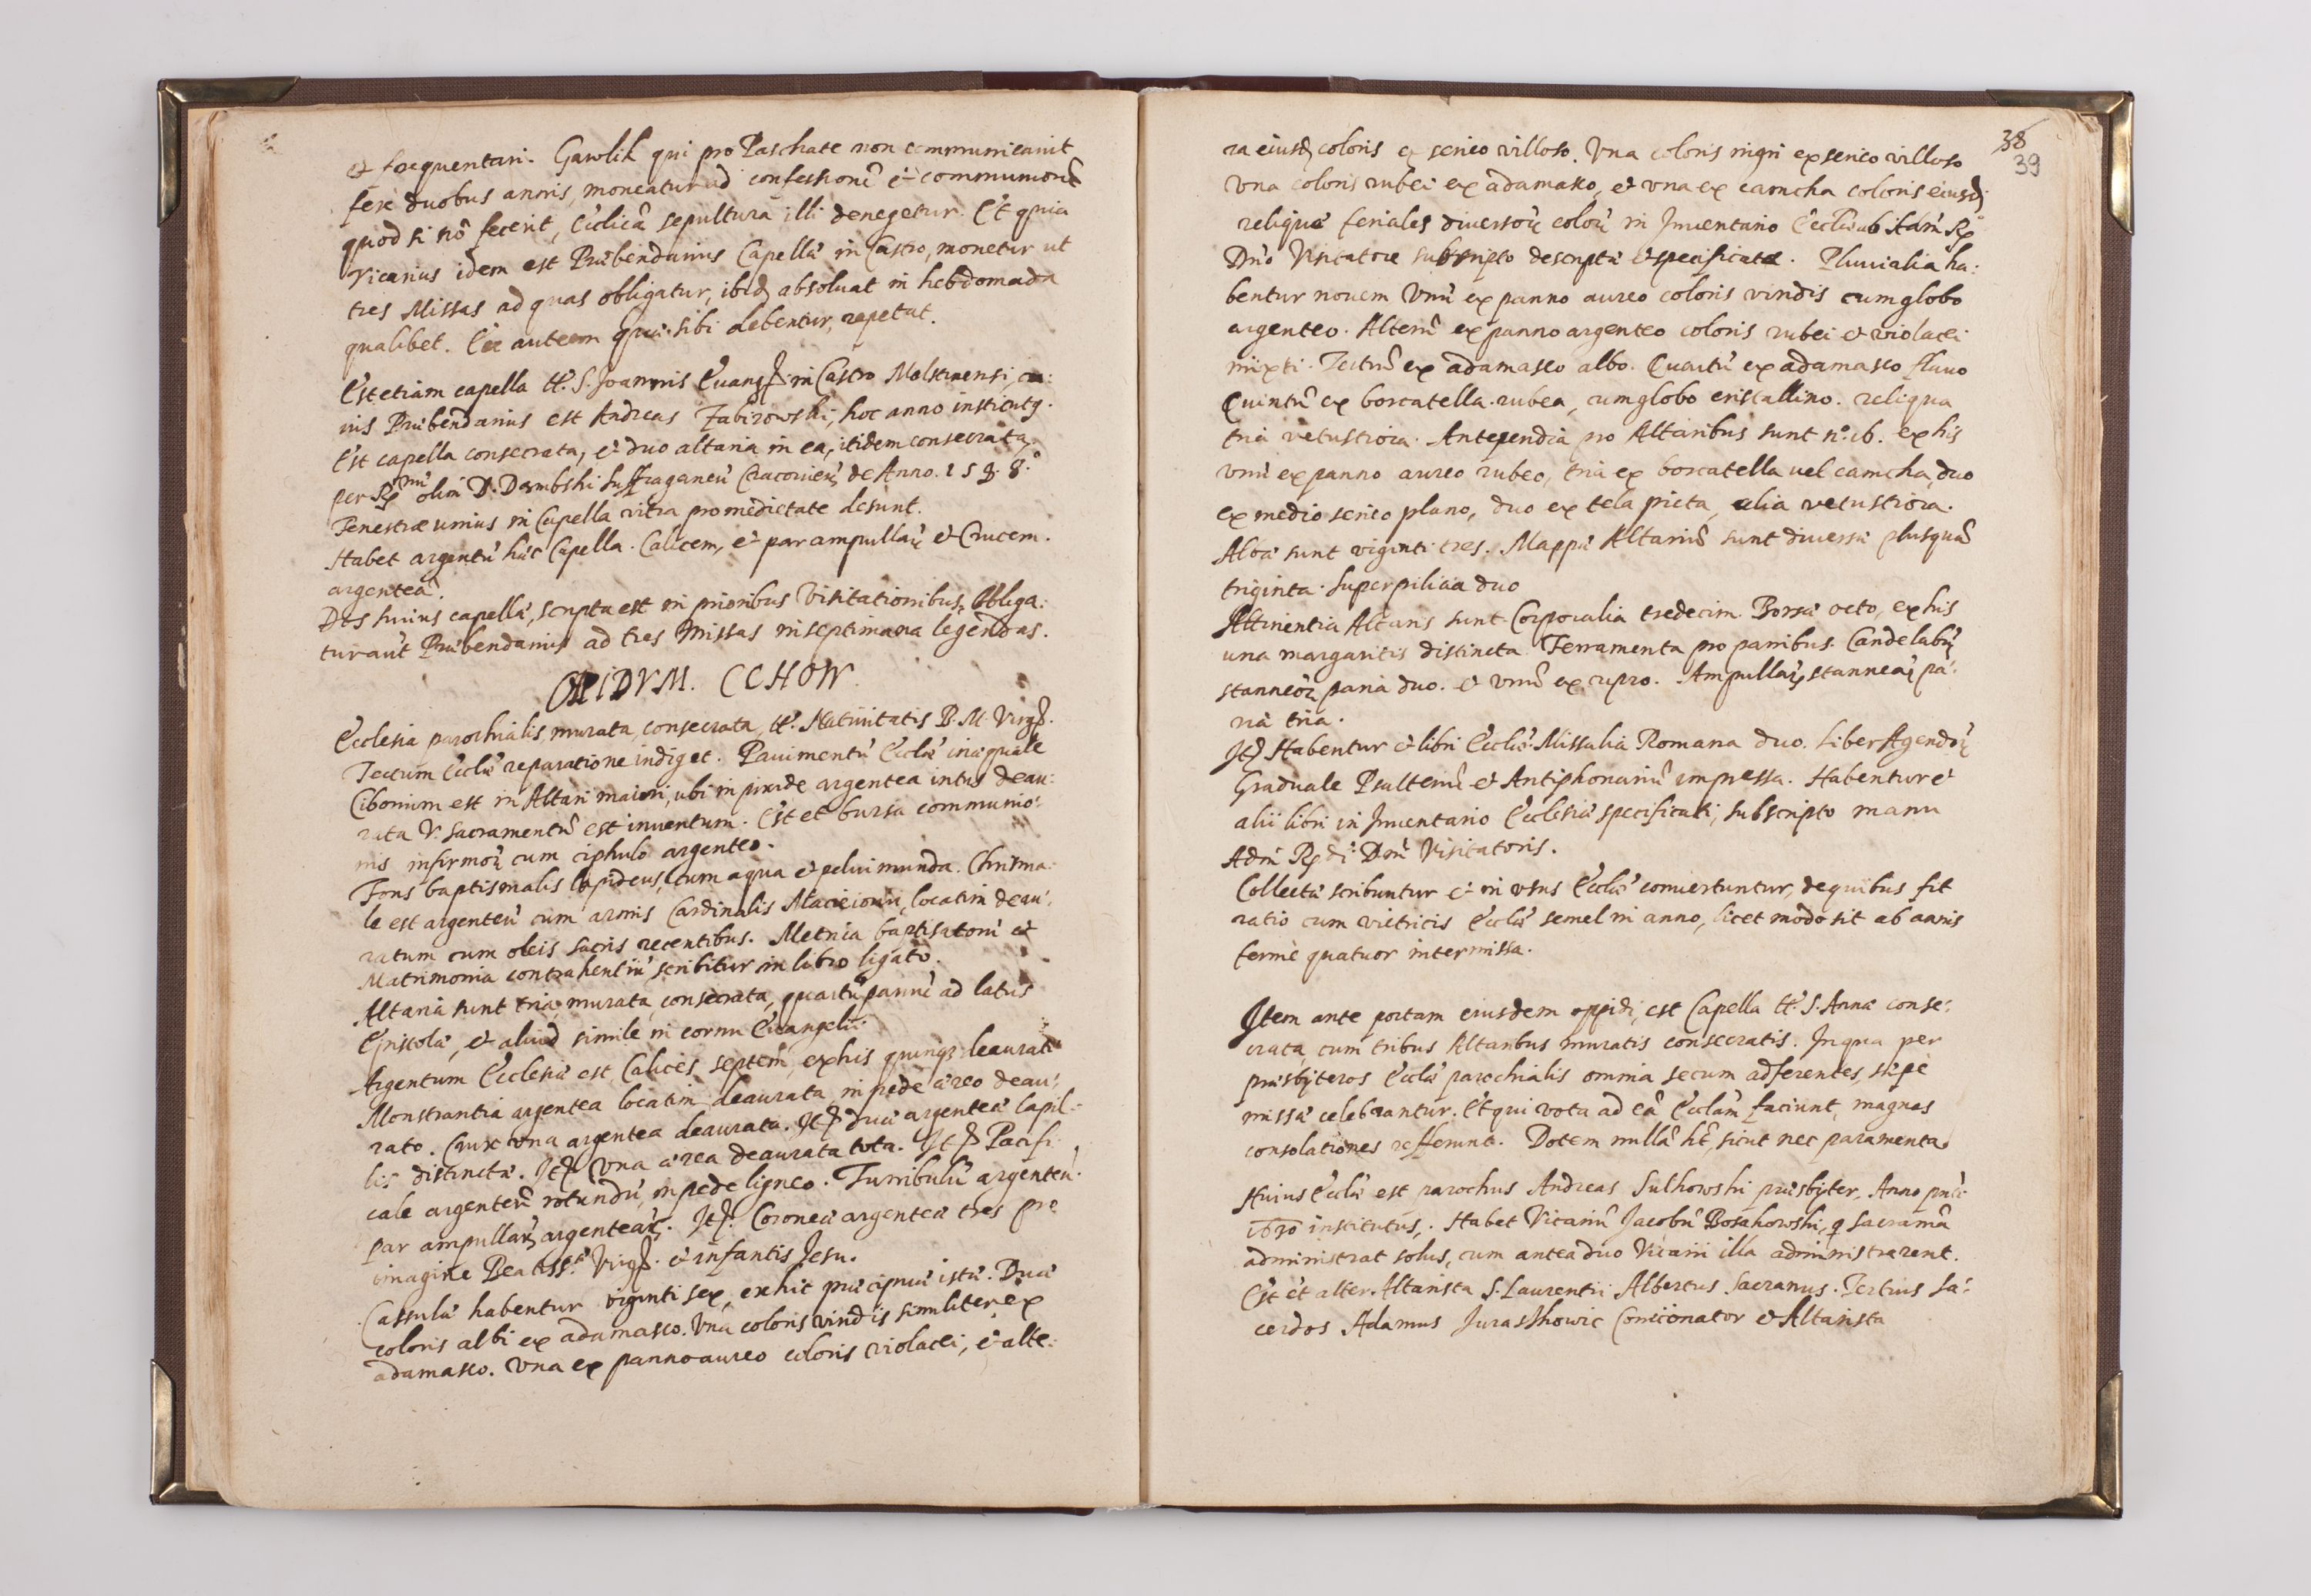 et frequentari. Gawlik qui pro Paschate non communicauit
fere duobus annis, moneatur ad confessionē et communionē
quod si nō fecerit, Eccl̄icā sepultura illi denegetur. Et quia
Vicarius idem est Præbendarius Capellæ in Castro, monetur ut
tres Missas ad quas obligatur, ibid. absoluat in hebdomada
qualibet. Ea autem quæ sibi debentur, repetat.
Est etiam capella tt. S. Joannis Euang. in Castro Molstinensi, cu:
ius Præbendarius est Andreas Zabirowski, hoc anno institutꝯ.
Est capella consecrata, et duo altaria in ea, itidem consecrata,
per Rmū olim D. Dembski Suffraganeū Cracovieñ, de Anno. 158.8.
Fenestræ unius in Capella vitra pro medietate desunt.
Habet argentū hæc Capella. Calicem, et par ampullarꝵ et Crucem.
argenteā.
Dos huius capellæ, scripta est in prioribus Visitationibus, Obliga:
tur aūt Præbendarius ad tres Missas in septimana legendas.
OPPIDVM. CCHOW.
Ecclesia parochialis, murata, consecrata, tt. Natiuitatis B. M. Virg.
Tectum Eccl̄æ reparatione indiget. Pauimentū Eccl̄æ inæquale
Ciborium est in Altari maiori, ubi in pixide argentea intus deau:
rata V. Sacramentū est inuentum. Est et bursa communio:
nis infirmorꝵ cum ciphulo argenteo.
Fons baptismalis lapideus, cum aqua et pelui munda. Chrisma:
le est argenteū cum armis Cardinalis Macieiouii, locatim deau:
ratum cum oleis sacris recentibus. Metrica baptisatorū et
Matrimonia contrahentiū, scribitur in libro ligato.
Altaria sunt tria, murata, consecrata, quartū paruū ad latus
Epistolæ, et aliud simile in cornu Euangelii.
Argentum Ecclesiæ est, Calices septem, ex his quinqꝫ deaurati
Monstrantia argentea locatim deaurata, in pede æreo deau:
rato. Crux vna argentea deaurata. Itē duæ argenteæ lapil:
lis distinctæ. Itē vna ærea deaurata tota. Itē Pacifi:
cale argenteū rotundū, in pede ligneo. Turribulū argenteū.
par ampullarꝵ argentearꝵ. Itē. Coroneæ argenteæ tres pro
imagine Beatiss. Virg. et infantis Jesu.
Casulæ habentur viginti sex, ex hic præcipuæ istæ. Duæ
coloris albi ex adamasco. Vna coloris viridis similiter ex
adamasco. Vna ex panno aureo coloris violacei, et alte:
38
39
ra eiusd coloris ex serico villoso. Vna coloris nigri ex serico villoso
Vna coloris rubei ex adamasco, et vna ex camcha coloris eiusd.
reliquæ feriales diuersorꝵ colorꝵ in Inuentario Eccl̄iæ ab Adm̄ R.
Dn̄o Visitatore subscripto descriptæ et specificatæ. Pluuialia ha:
bentur nouem vnū ex panno aureo coloris viridis cum globo
argenteo. Alterū ex panno argenteo coloris rubei et violacei
mixti. Tertiū ex adamasco albo. Quartū ex adamasco flauo
Quintū ex borcatella rubea, cum globo cristallino. reliqua
tria vetustiora. Antependia pro Altaribus sunt nᵒ. 16. ex his
vnū ex panno aureo rubeo, tria ex borcatella uel camcha, duo
ex medio serico plano, duo ex tela picta, alia vetustiora.
Albæ sunt viginti tres. Mappæ Altariū sunt diuersæ plusquā
triginta. Superpilicia duo
Attinentia Altaris sunt Corporalia tredecim. Borsæ octo, ex his
una margaritis distincta. Ferramenta pro panibus. Candelabrꝵ
stanneorꝵ paria duo. et vnū ex cupro. Ampullarꝵ stannearꝵ pa:
ria tria.
Itē Habentur et libri Eccl̄iæ. Missalia Romana duo. Liber Agendorꝵ
Graduale Psalteriū et Antiphonariū impressa. Habentur et
alii libri in Inuentario Ecclesiæ specificati, subscripto manu
Adm̄ Rdi Dn̄i Visitatoris.
Collectæ scribuntur et in vsus Eccl̄æ conuertuntur, de quibus fit
ratio cum vietricis Eccl̄æ semel in anno, licet modo sit ab annis
ferme quatuor intermissa.
Item ante portam eiusdem oppidi, est Capella tt. S. Annæ conse:
crata, cum tribus Altaribus muratis consecratis. In qua per
præsbyteros Eccl̄æ parochialis omnia secum adferentes, sæpe
missæ celebrantur. Et qui vota ad eā Eccl̄am faciunt, magnas
consolationes referunt. Dotem nullā ht, sicut nec paramenta.
Huius Eccl̄æ est parochus Andreas Sulkowski præsbyter, Anno pn̄ti
institutus. Habet Vicariū Jacobū Bosakowski, q̃ sacramā
administrat solus, cum antea duo Vicarii illa administrarent.
Est et alter Altarista S. Laurentii Albertus Sacranus. Tertius sa:
cerdos Adamus Juraskowic Concionator et Altarista